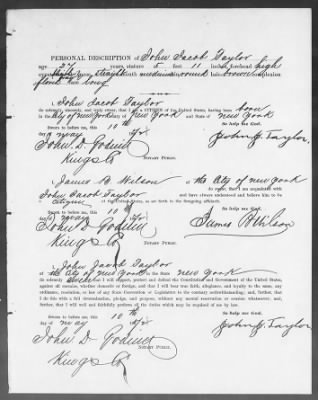 PERSONAL DESCRIPTION of John Jacob Taylor
age years, stature 5 feet 11 inches, forehead high
straight medium round hair brown complexion
John Jacob Taylor
do solemnly, sincerely, and truly swear, that I am a CITIZEN of the United States, having been born
in the City of New York of New York and State of New York
So help me God.
Sworn to before me, this 10th
May John J. Taylor
John D. Godine
Kings Co NOTARY PUBLIC.
James B. Wilson of the City of New York
do swear, that I am acquainted with
John Jacob Taylor and have always understood and believe him to be
Citizen of the United States, as set forth in the foregoing affidavit.
So help me God.
Sworn to before me, this 10th
May James B. Wilson
John D. Godine
Kings Co NOTARY PUBLIC.
John Jacob Taylor
of the City of New York in the State New York
do solemnly swear that I will support, protect and defend the Constitution and Government of the United States,
against all enemies, whether domestic or foreign, and that I will bear true faith, allegiance, and loyalty to the same, any
ordinance, resolution, or law of any State Convention or Legislature to the contrary notwithstanding; and, further, that
I do this with a full determination, pledge, and purpose, without any mental reservation or evasion whatsoever; and,
further, that I will well and faithfully perform all the duties which may be required of me by law.
So help me God.
Sworn to before me, this 10th
day of May John J. Taylor
John D. Godine
NOTARY PUBLIC.
Kings Co